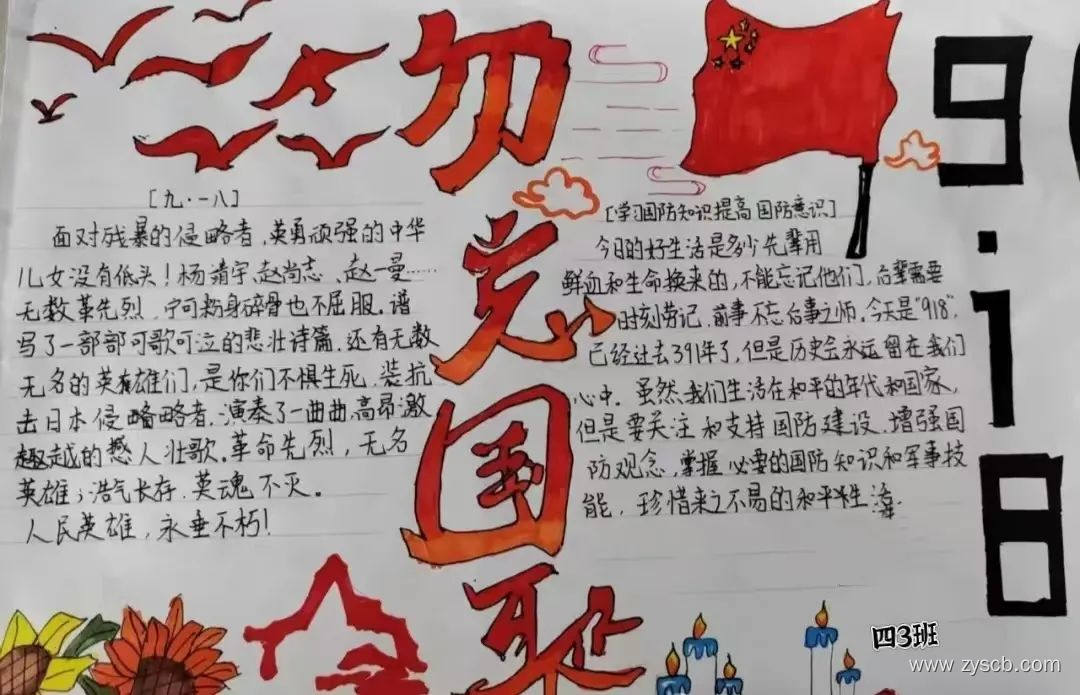 勿忘国耻
9·18
[九·一八]
面对残暴的侵略者，英勇顽强的中华
儿女没有低头！杨靖宇、赵尚志、赵一曼……
无数革先烈，宁可粉身碎骨也不屈服。谱
写了一部部可歌可泣的悲壮诗篇，还有无数
无名的英雄们，是你们不惧生死，装抗
击日本侵略略者，演奏了一曲曲高昂激
趣越的憨人壮歌。革命先烈，无名
英雄；浩气长存，英魂不灭。
人民英雄，永垂不朽！
[学习国防知识提高国防意识]
今日的好生活是多少先辈用
鲜血和生命换来的，不能忘记他们，后辈需要
时刻劳记，前事不忘后事之师。今天是“918”，
已经过去391年了，但是历史会永远留在我们
心中。虽然我们生活在和平的年代和国家，
但是要关注和支持国防建设，增强国
防观念，掌握必要的国防知识和军事技
能，珍惜来之不易的和平性活。
四3班
www.zyscb.com